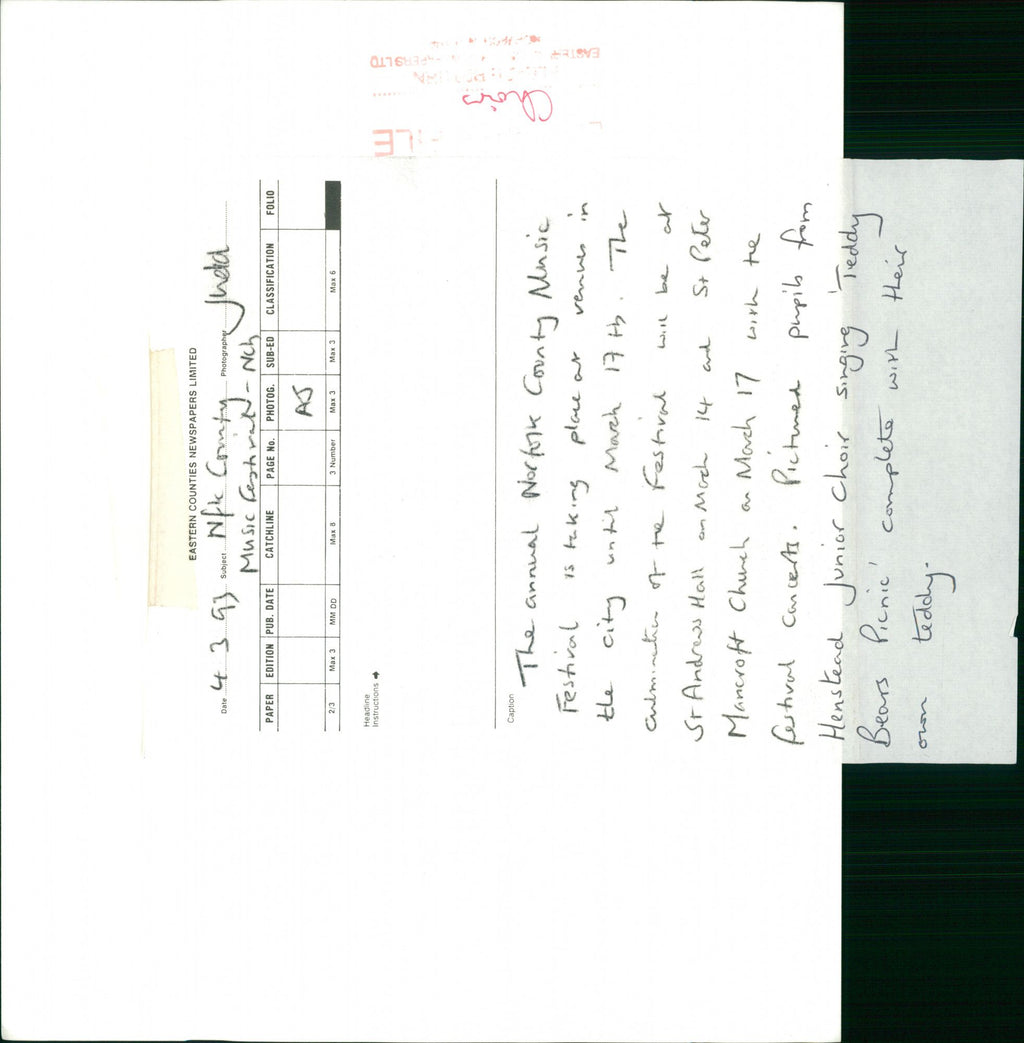 EASTERN COUNTIES NEWSPAPERS LIMITED
Date 4 3 93 Subject Nfk County Photographer Judd
Music Festival - Nch
PAPER EDITION PUB. DATE CATCHLINE PAGE No. PHOTOG. SUB-ED CLASSIFICATION FOLIO
AJ
2/3 Max 3 MM DD Max 8 3 Number Max 3 Max 3 Max 6
Headline
Instructions ➔
Caption
The annual Norfolk County Music
Festival is taking place at venues in
the city until March 17th. The
culmination of the Festival will be at
St Andrews Hall on March 14 and St Peter
Mancroft Church on March 17 with the
festival concerts. Pictured pupils from
Henstead Junior Choir singing 'Teddy
Bears Picnic' complete with their
own teddy.
Choirs